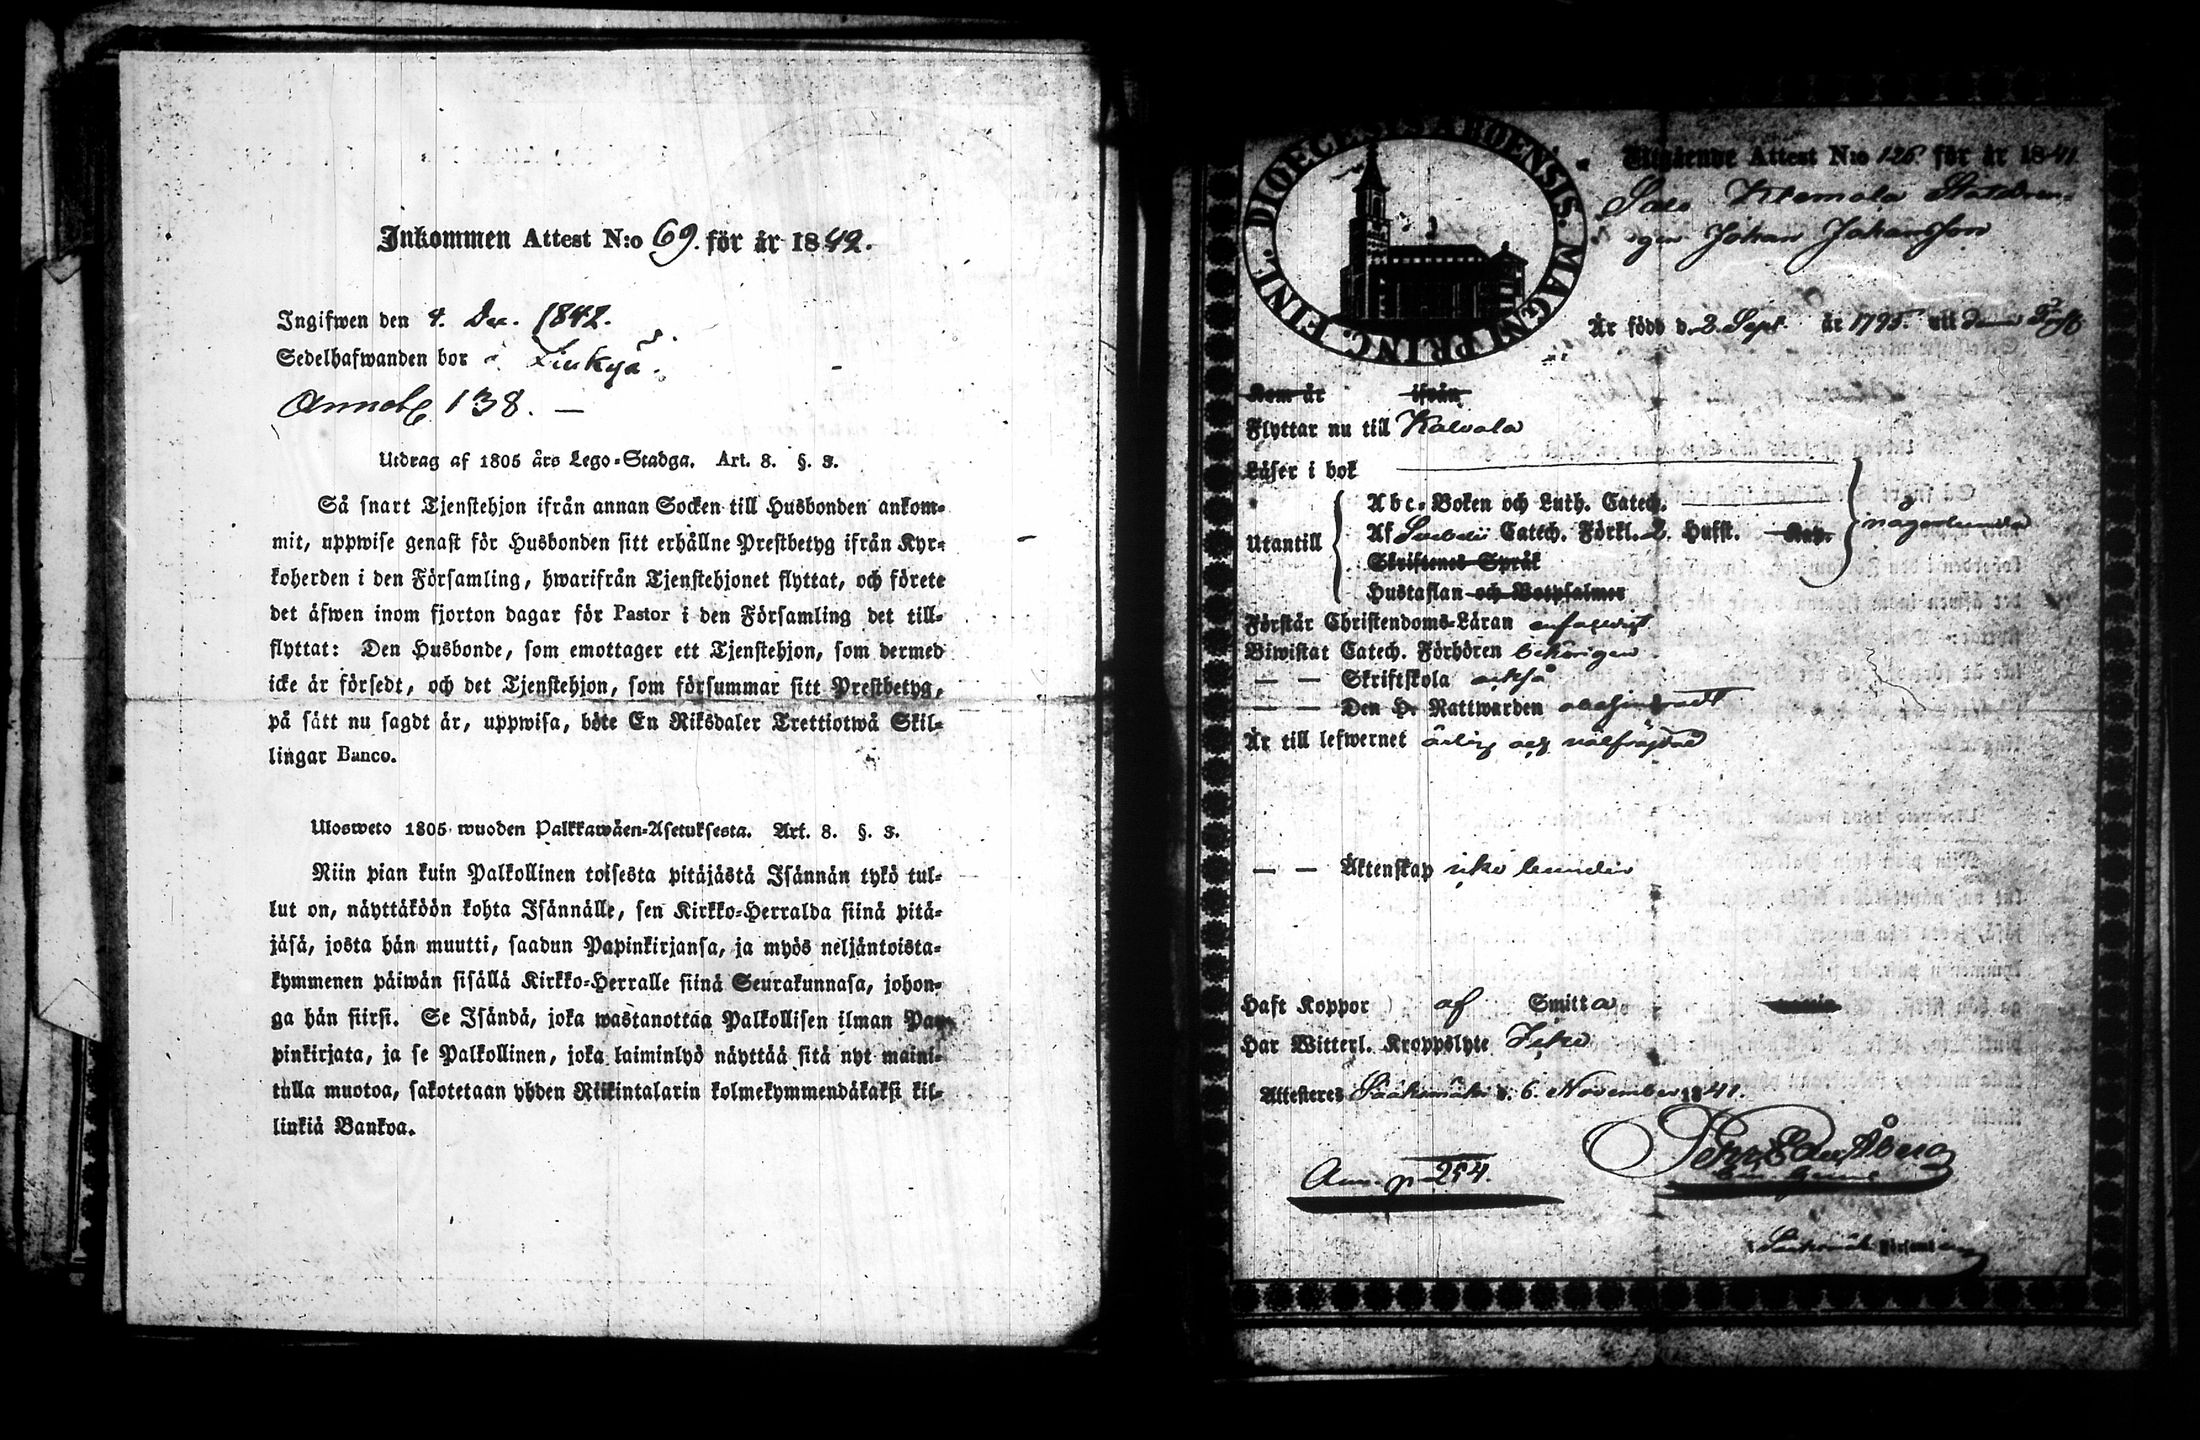 Inkommen Attest N:o 69. för år 1842.
Ingifwen den 4. Dec. 1842.
Sedelhafwanden bor i
138. —
Utdrag af 1805 års Lego-Stadga. Art. 3. §. 3.
Så snart Tjenstehjon ifrån annan Socken till Husbonden ankom-
mit, uppwise genast för Husbonden sitt erhållne Prestbetyg ifrån Kyr-
koherden i den Församling, hwarifrån Tjenstehjonet flyttat, och förete
det äfwen inom fjorton dagar för Pastor i den Församling det till-
flyttat: Den Husbonde, som emottager ett Tjenstehjon, som dermed
icke är försedt, och det Tjenstehjon, som försummar sitt Prestbetyg,
på sätt nu sagdt är, uppwisa, böte En Riksdaler Trettiotwå Skil-
lingar Banco.
Ulosweto 1805 wuoden Palkkawäen-Asetuksesta. Art. 3. §. 3.
Niin pian kuin Palkollinen toisesta pitäjästä Isännän tykö tul-
lut on, näyttäköön kohta Isännälle, sen Kirkko-Herralda siinä pitä-
jäsä, josta hän muutti, saadun Papinkirjansa, ja myös neljäntoista-
kymmenen päiwän sisällä Kirkko-Herralle siinä Seurakunnasa, johon-
ga hän siirsi. Se Isändä, joka wastanottaa Palkollisen ilman Pa-
pinkirjata, ja se Palkollinen, joka laiminlyö näyttää sitä nyt maini-
tulla muotoa, sakotetaan yhden Riikintalarin kolmekymmendäkaksi kil-
linkiä Bankoa.
DIOECESIS ABOENSIS. MAGNI PRINC. FINL.
Utgående Attest N:o 126 för år 1841
Klemola
Johan Johansson
Är född d. 2. Sept. år 1795. uti
Kom år ifrån
Flyttar nu till Kalvola
Läser i bok
Abc-Boken och Luth. Catech.
Utantill Af Svebelii Catech. Förkl. 2. Hufst. Kap. någorlunda
Skriftenes Språk
Hustaflan och Botpsalmer
Förstår Christendoms-Läran enfaldigt
Biwistat Catech. Förhören behörigen
— — Skriftskola också
— — Den H. Nattwarden
Är till lefwernet ärlig och välfräjdad
— — Äktenskap icke bunden
Haft Koppor af Smitta
Har Witterl. Kroppslyte Icke
Attesteres Sääksmäki d. 6. November 1841.
Ann. p. 254.